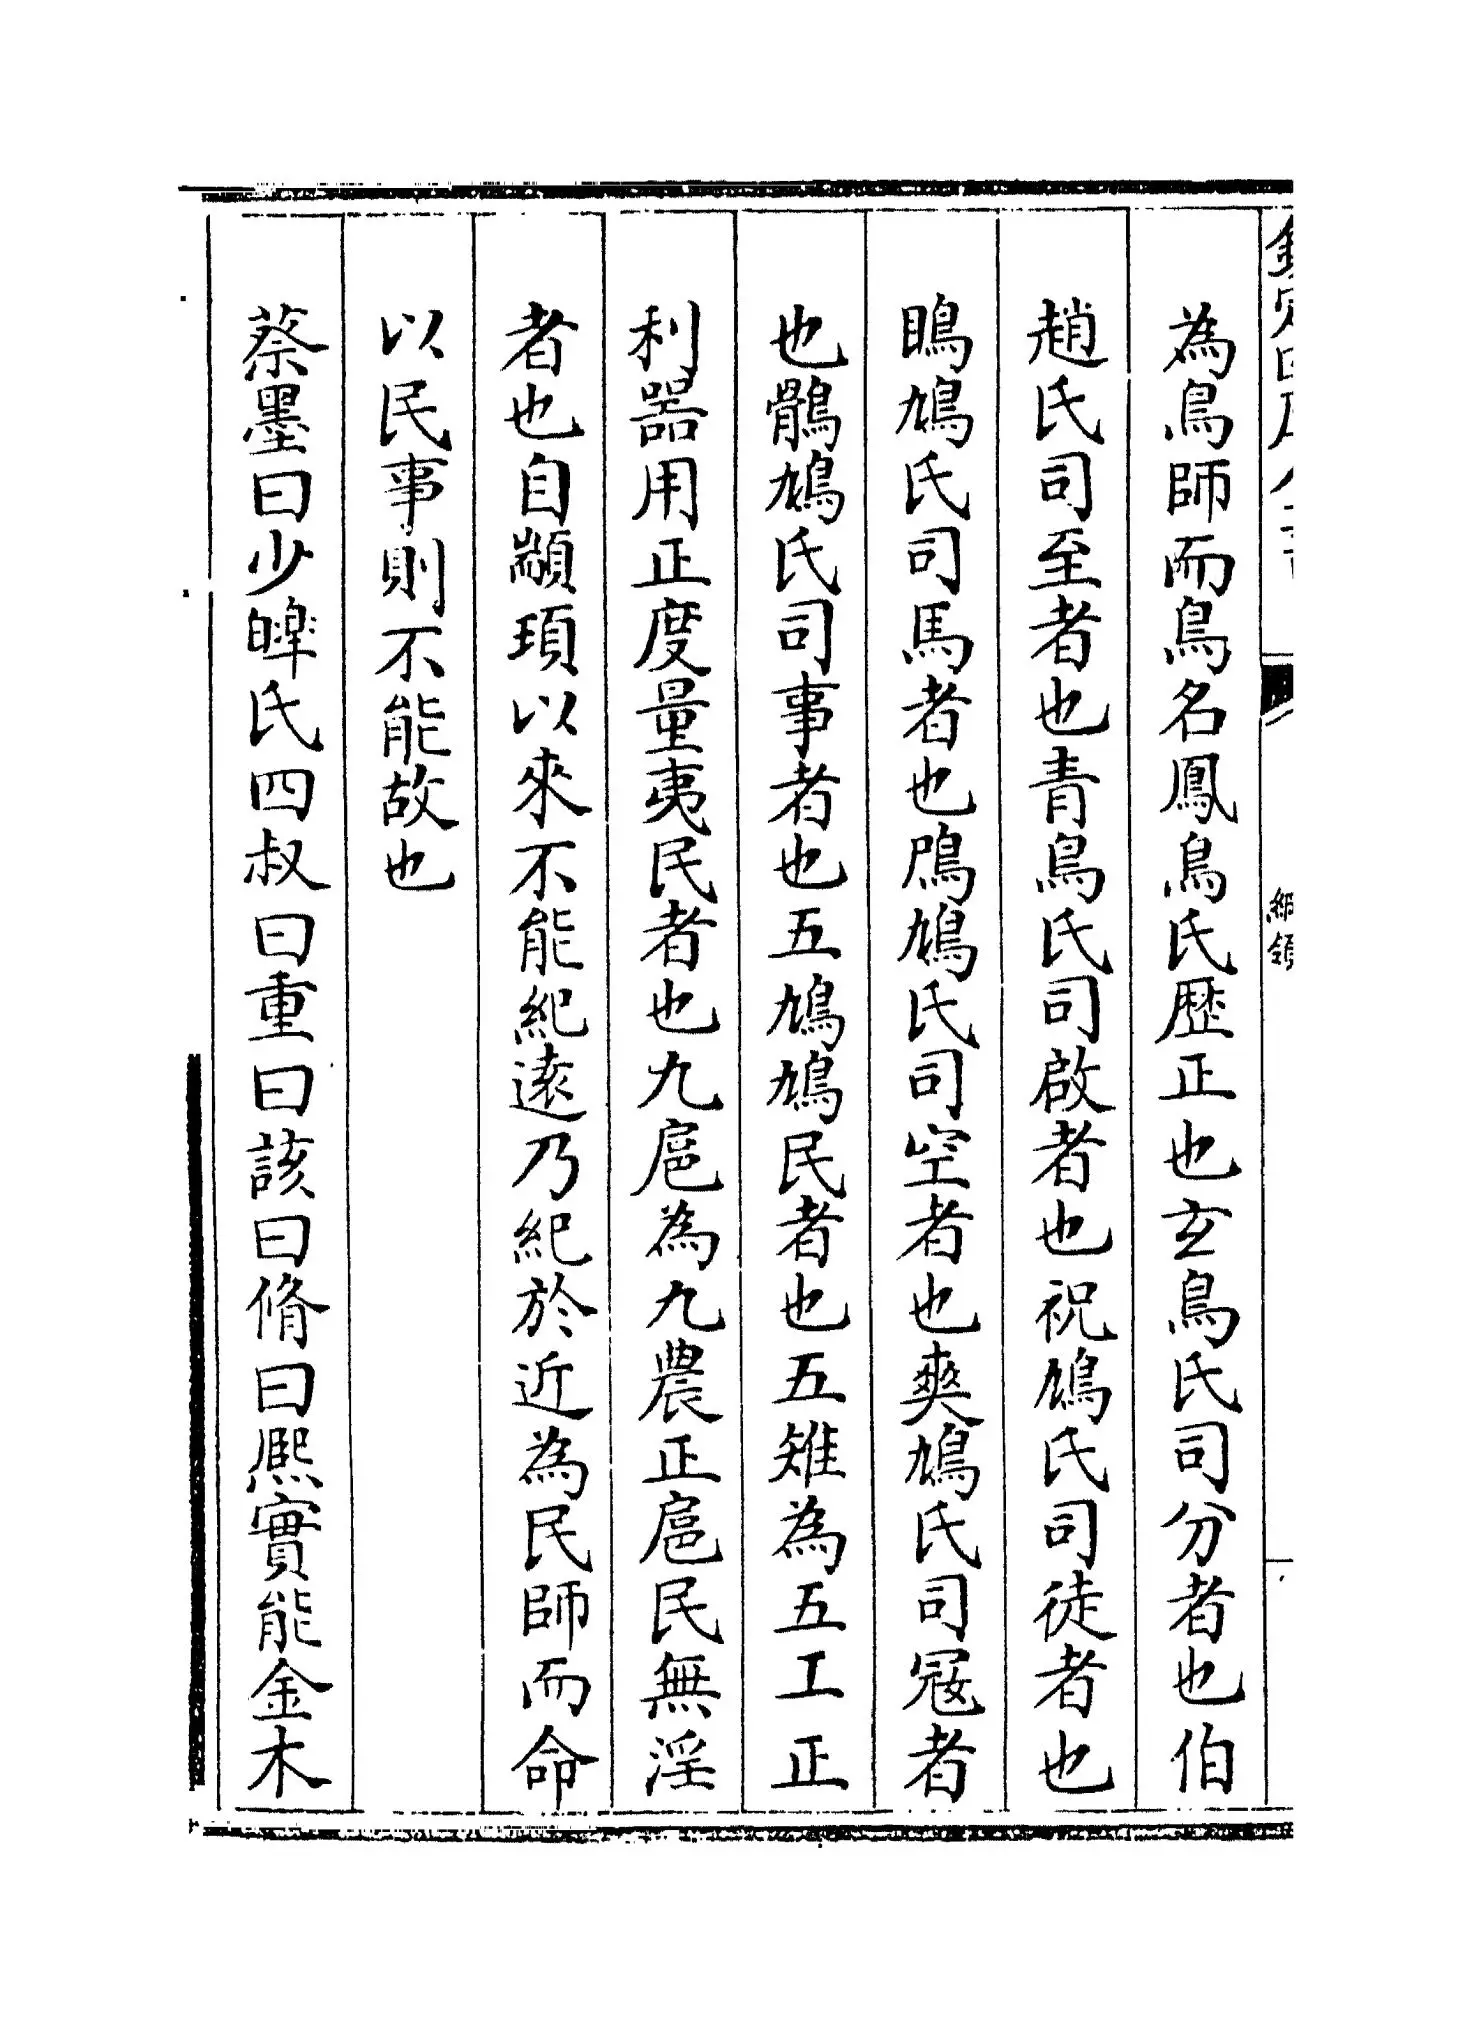 為鳥師而鳥名鳳鳥氏歴正也玄鳥氏司分者也伯
趙氏司至者也青鳥氏司啟者也祝鳩氏司徒者也
鴡鳩氏司馬者也鳲鳩氏司空者也爽鳩氏司冦者
也鶻鳩氏司事者也五鳩鳩民者也五雉為五工正
利器用正度量夷民者也九扈為九農正扈民無淫
者也自顓頊以來不能紀遠乃紀於近為民師而命
以民事則不能故也
蔡墨曰少皥氏四叔曰重曰該曰脩曰熈實能金木